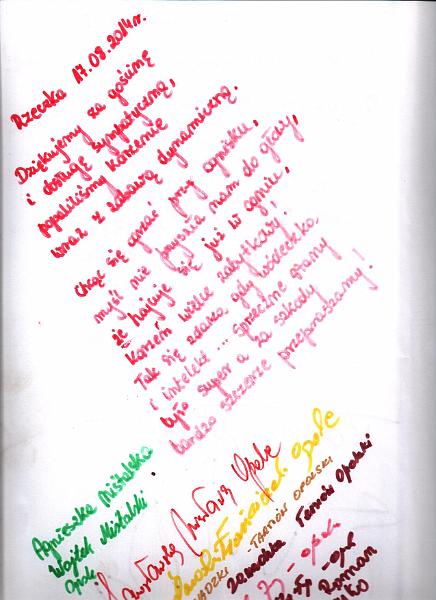 Rzeczka 17.08.2014r.
Dziękujemy za gościnę
i obsługę sympatyczną,
popaliliśmy korzenie
wraz z zabawą dynamiczną.
Chcąc się ogrzać przy ognisku,
myśl nie przyszła nam do głowy,
że hajcuje się już w ogniu,
Korzeń wielce zabytkowy!
Tak się zdarza gdy wódeczka
i intelekt... sprzeczne stany
było super a za szkody
bardzo szczerze przepraszamy!
Agnieszka Mistalska
Wojtek Mistalski
Opole
Opole
Opole
TARNÓW OPOLSKI
Tarnów Opolski
Opole
Roman